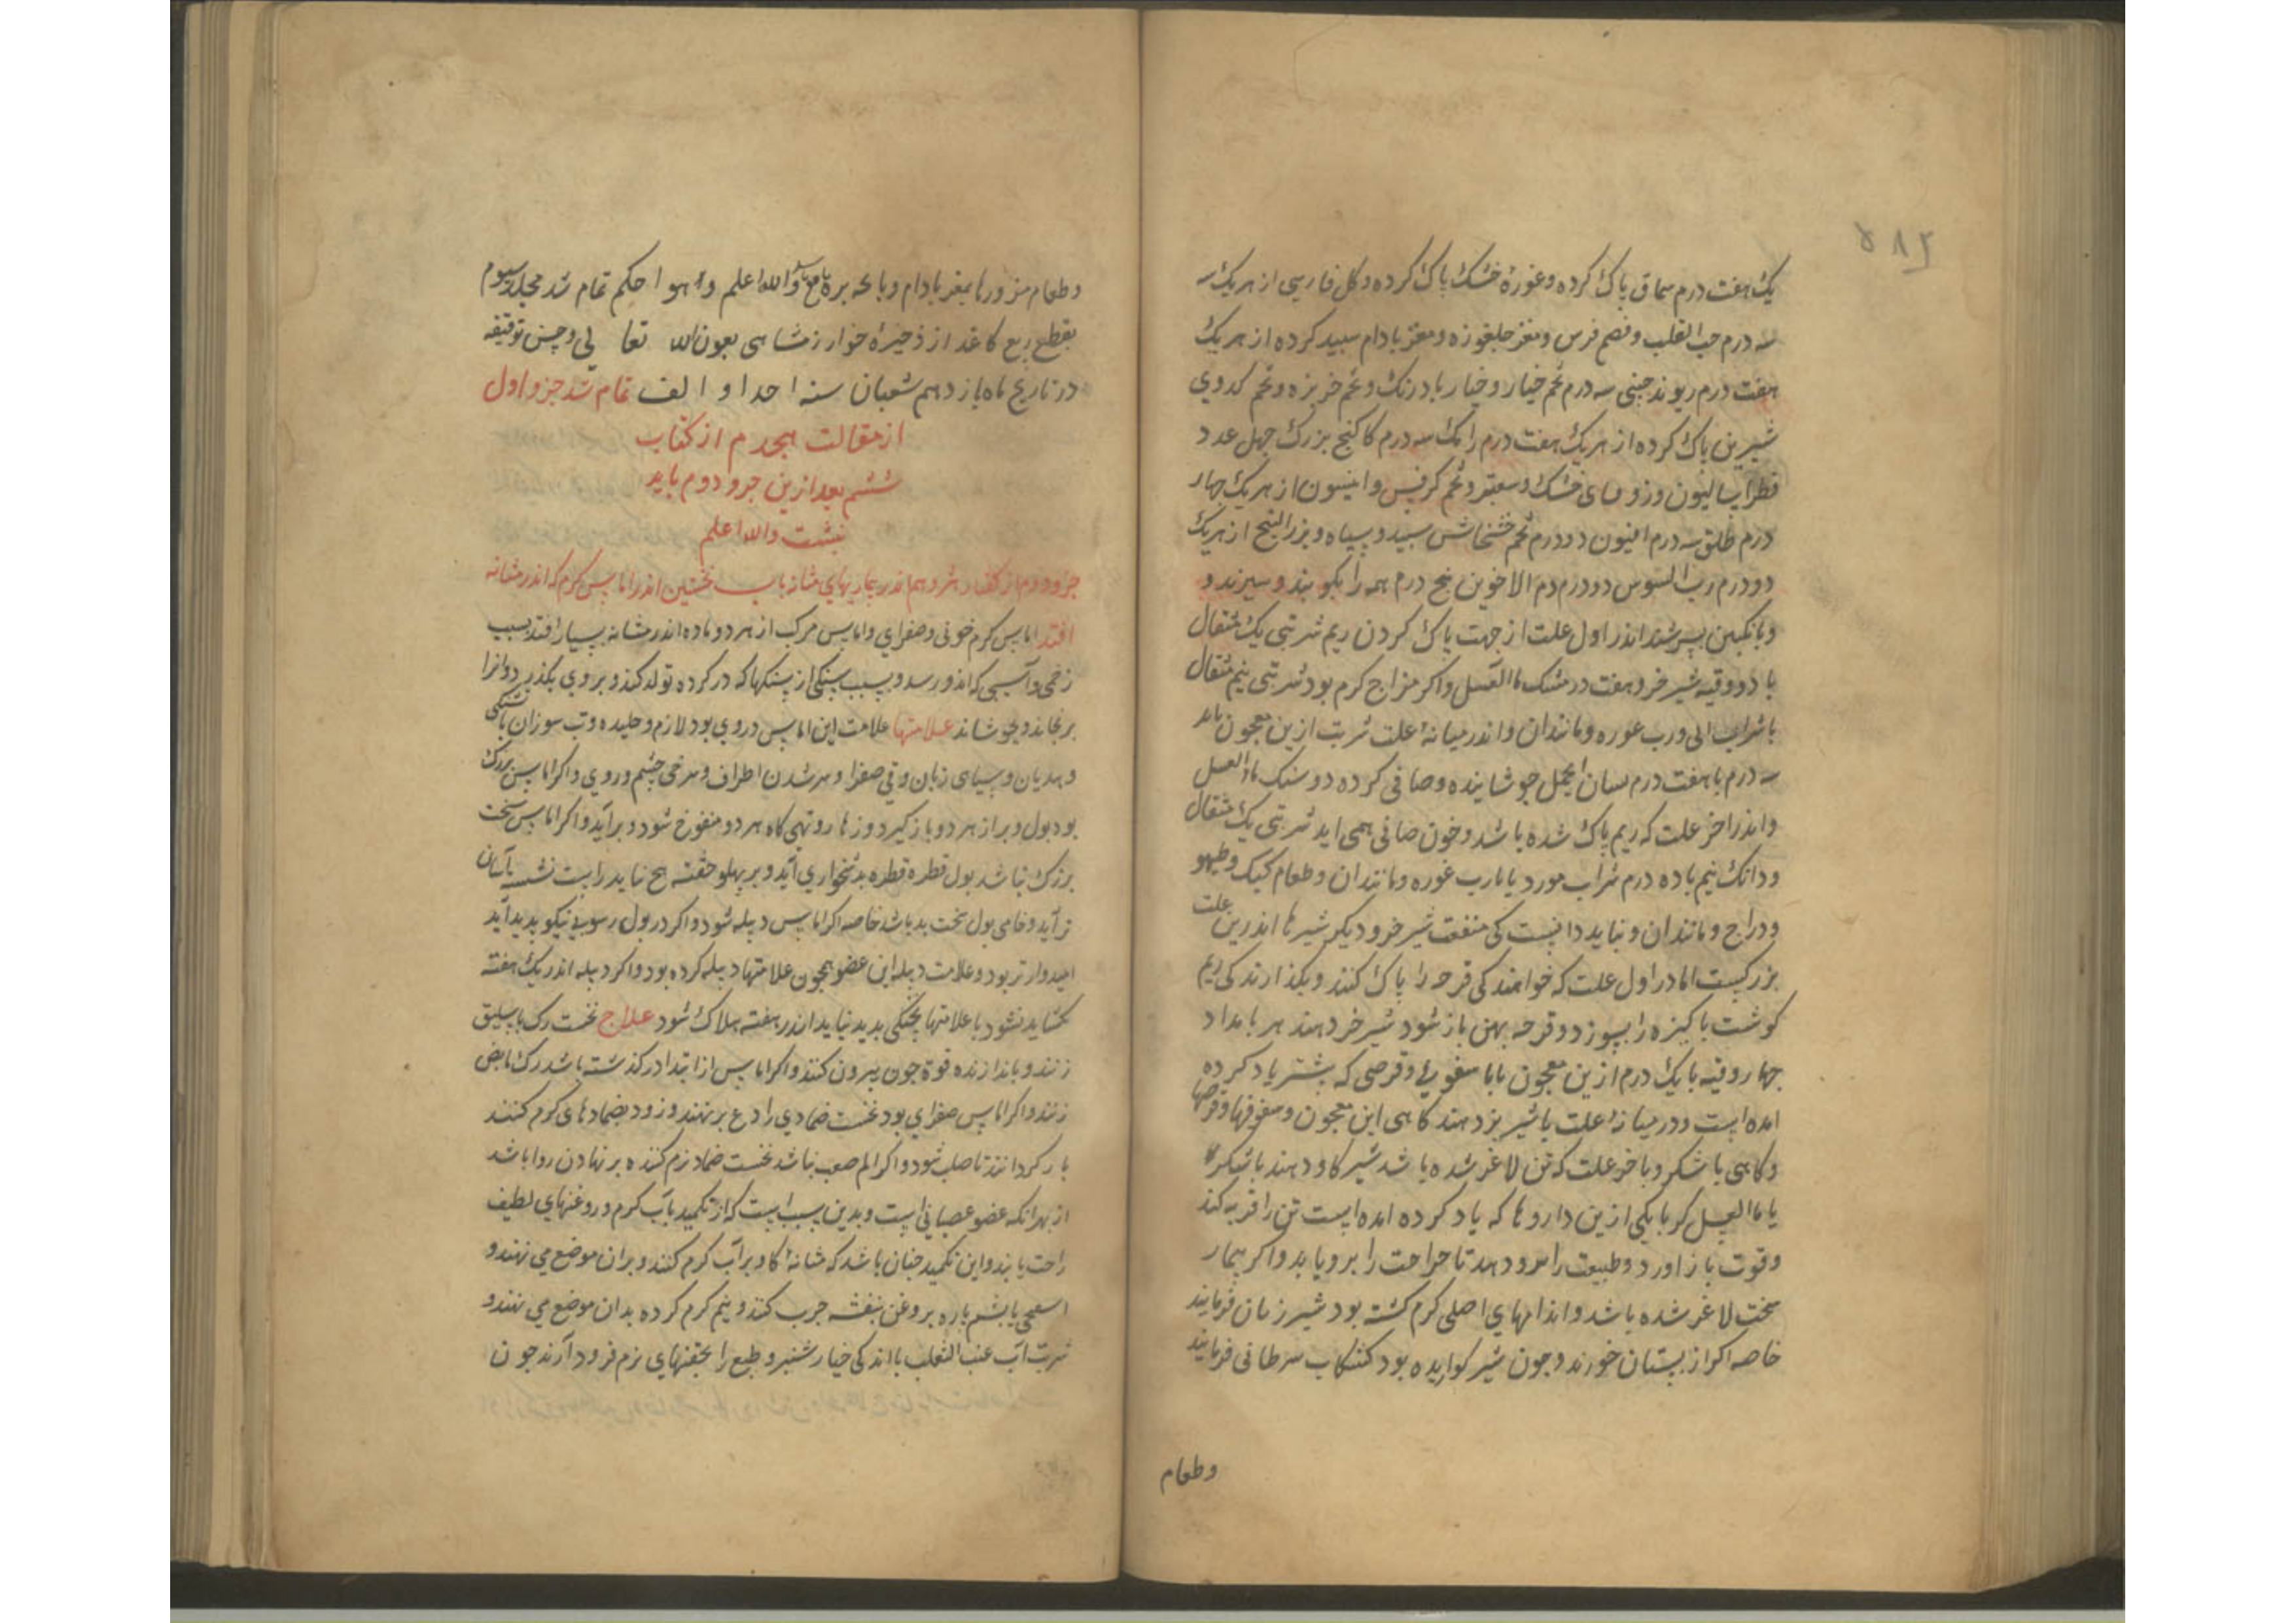 ۵۸۲
یک هفت درم سماق پاک کرده و غورهٔ خشک پاک کرده و کل فارسی از هر یک سه
سه درم حب القلب و فرس و مغز جلغوزه و مغز بادام سپید کرده از هر یک
هفت درم ریوند جینی سه درم تخم خیار و خیار بادرنک و تخم خربزه و تخم کدوی
شیرین پاک کرده از هر یک هفت درم رامک سه درم کاکنج بزرک جهل عدد
فطراسالیون و زوفای خشک و سعتر و تخم کرفس و انیسون از هر یک جهار
درم طلق سه درم افیون دو درم تخم خشخاش سپید و سیاه و بزر البنج از هر یک
دو درم رب السوس دو درم دم الاخوین بنج درم همه را بکوبند و ببیزند و
و بانکبین بسرشند اندر اول علت از جهت پاک کردن ریم شربتی یک مثقال
با دو وقیه شیر خر و هفت درمسنک ماالعسل و اکر مزاج کرم بود شربتی نیم مثقال
با شراب و رب غوره و مانند ان و اندر میانهٔ علت شربت ازین معجون
سه درم با هفت درم لسان الحمل جوشانیده و صافی کرده دو سنک ماالعسل
و اندر اخر علت که ریم پاک شده باشد و خون صافی همی اید شربتی یک مثقال
و دانک نیم با ده درم شراب مورد یا با رب غوره و مانند ان و طعام کبک و طیهو
و دراج و مانند ان و بباید دانست کی منفعت شیر خر و دیکر شیرها اندرین علت
بزرکست اما در اول علت که خواهند کی قرحه را پاک کنند و بکذارند کی ریم
کوشت باکیزه را بسوزد و قرحه بهن باز شود شیر خر دهند هر بامداد
جهار وقیه با یک درم ازین معجون یا با سفوفی و قرصی که بیشتر یاد کرده
امده است و در میانهٔ علت با شیر بز دهند کاهی این معجون و سفوفها و قرصها
و کاهی با شکر و باخر علت که تن لاغر شده باشد شیر کاو دهند با شکر
یا با العسل کر با یکی ازین داروها که یاد کرده امده است تن را فربه کند
و قوت باز اورد و طبیعت را مدد دهد تا جراحت را برویاند و اکر بیمار
سخت لاغر شده باشد و اندامهای اصلی کرم کشته بود شیر زنان فرمایند
خاصه اکر از بستان خورند و جون شیر کوارنده بود کشکاب سرطانی فرمایند
و طعام
و طعام مزورها بمغز بادام و باجه بره و الله اعلم و هو احکم تمام شد مجلد سیوم
بقطع ربع کاغد از ذخیرهٔ خوارزمشاهی بعون الله تعالی و حسن توفیقه
در تاریخ ماه یازدهم شعبان سنه احدا و الف تمام شد جزو اول
از مقالت هجدم از کتاب
ششم بعد ازین جزو دوم باید
نبشت والله اعلم
جزو دوم از کفتار هژدهم اندر بیماریهای مثانه باب نخستین اندر اماس کرم که اندر مثانه
افتد اماس کرم خونی و صفرای و اماس مرکب از هر دو ماده اندر مثانه بسیار افتد بسبب
زخمی و آسیبی که اندو رسد و بسبب سنکی از سنکها که در کرده تولد کند و بروی بکذرد و انرا
برنجاند و بخوشاند علامتها علامت این اماس دروی بود لازم و خلیده و تب سوزان با تشنکی
و هدیان و سیاهی زبان و قی صفرا و سرد شدن اطراف و سرخی جشم و روی و اکر اماس بزرک
بود بول و براز هر دو باز کیرد و زهار و تهی کاه هر دو منفوخ شود و برآید و اکر اماس سخت
بزرک نباشد بول قطره قطره بدشخواری آید و بر پهلو خفته هیج نیاید راست نشسته آسان
تر آید و خامی بول سخت بد باشد خاصه اکر اماس دبیله شود و اکر در بول رسوبی نیکو پدید آید
امیدوارتر بود و علامت دبیله این عضو همجون علامتها دبیله کرده بود و اکر دبیله اندر یک هفته
کشاید نشود یا علامتها پختکی پدید نیاید اندر هفته هلاک شود علاج نخست رک باسلیق
زنند و باندازهٔ قوة خون بیرون کنند و اکر اماس از ابتدا در کذشته باشد رک مابض
زنند و اکر اماس صفرای بود نخست ضمادی رادع برنهند و زود بضمادهای کرم کنند
باز کردانند تا صلب نشود و اکر الم صعب نباشد نخست ضماد نرم کننده برنهادن روا باشد
از بهر انکه عضو عصبانی است و بدین سبب است که از تکمید بآب کرم و روغنهای لطیف
راحت یابند و این تکمید جنان باشد که مثانهٔ کاو بر آب کرم کنند و بران موضع می نهند و
اسفنجی یا بشم پاره بروغن بنفشه جرب کنند و نیم کرم کرده بدان موضع می نهند و
شربت آب عنب الثعلب با اندکی خیار شنبر و طبع را بحقنهای نرم فرود آرند جون